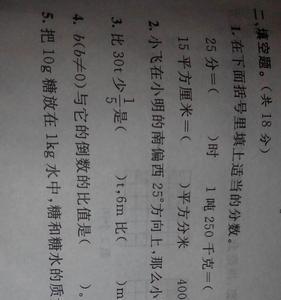 二、填空题。(共 18 分)
1. 在下面括号里填上适当的分数。
25 分=(  )时  1 吨 250 千克=(
15 平方厘米=(  )平方分米  400
2. 小飞在小明的南偏西 25°方向上,那么小
3. 比 30t 少 1/5 是(  )t,6m 比(  )m
4. b(b≠0)与它的倒数的比值是(  )。
5. 把 10g 糖放在 1kg 水中,糖和糖水的质